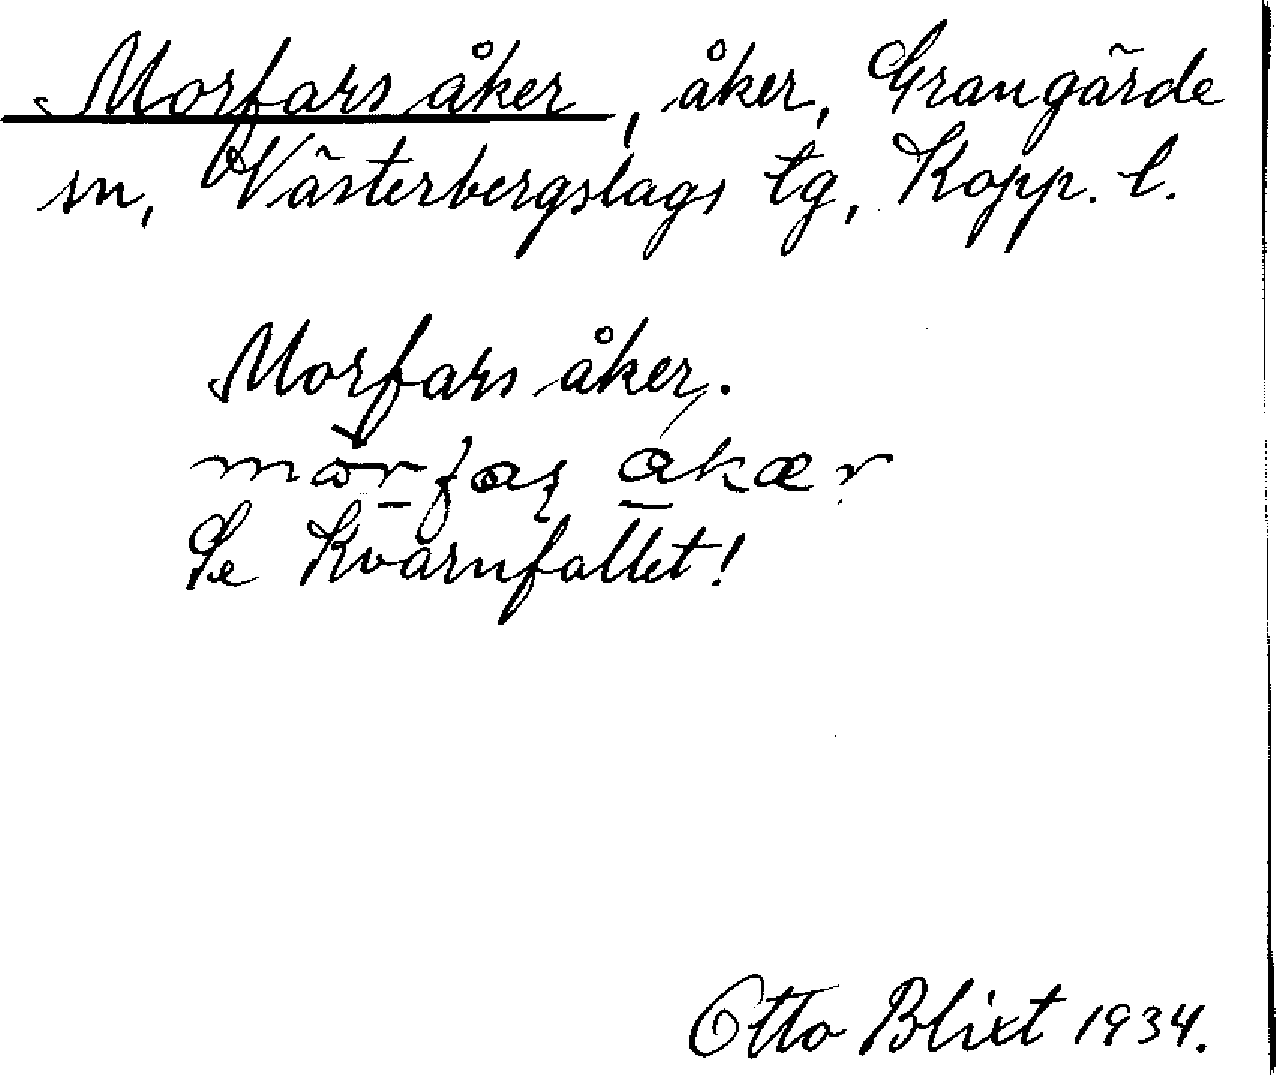 Morfars åker, åker, Grangärde
sn, Västerbergslags tg, Kopp. l.
Morfars åker.
Se Kvarnfallet!
Otto Blixt 1934.